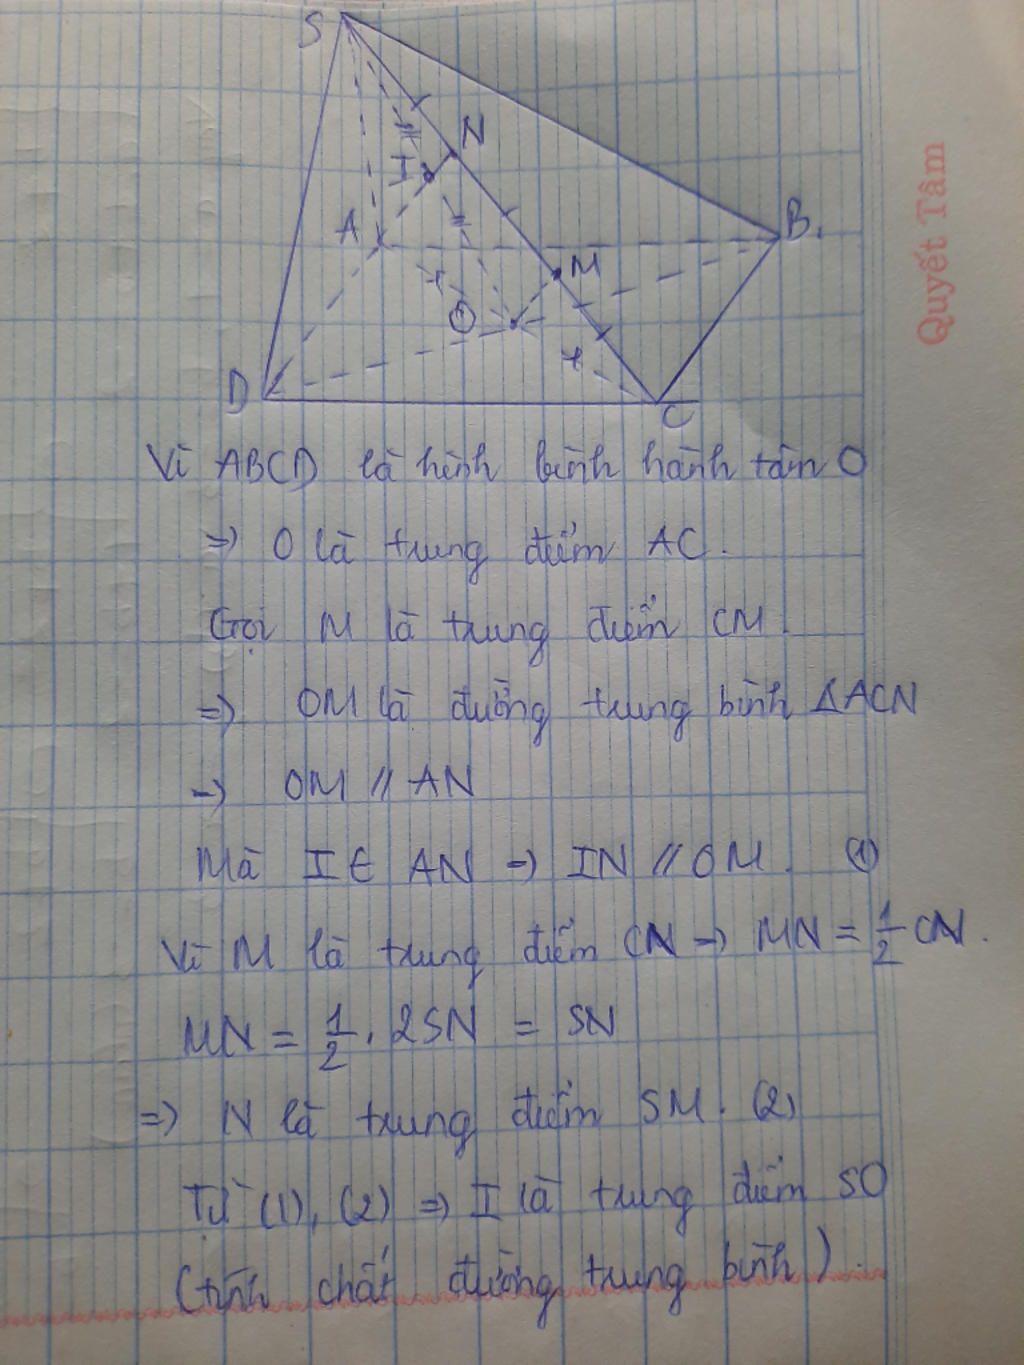 S
N
I
A
B.
M
O
D
C
Quyết Tâm
Vì ABCD là hình bình hành tâm O
=> O là trung điểm AC.
Gọi M là trung điểm CM.
=> OM là đường trung bình ΔACN
-> OM // AN
Mà I ∈ AN => IN // OM. (1)
Vì M là trung điểm CN => MN = 1/2 CN.
MN = 1/2 . 2SN = SN
=> N là trung điểm SM. (2)
Từ (1), (2) => I là trung điểm SO
(tính chất đường trung bình).